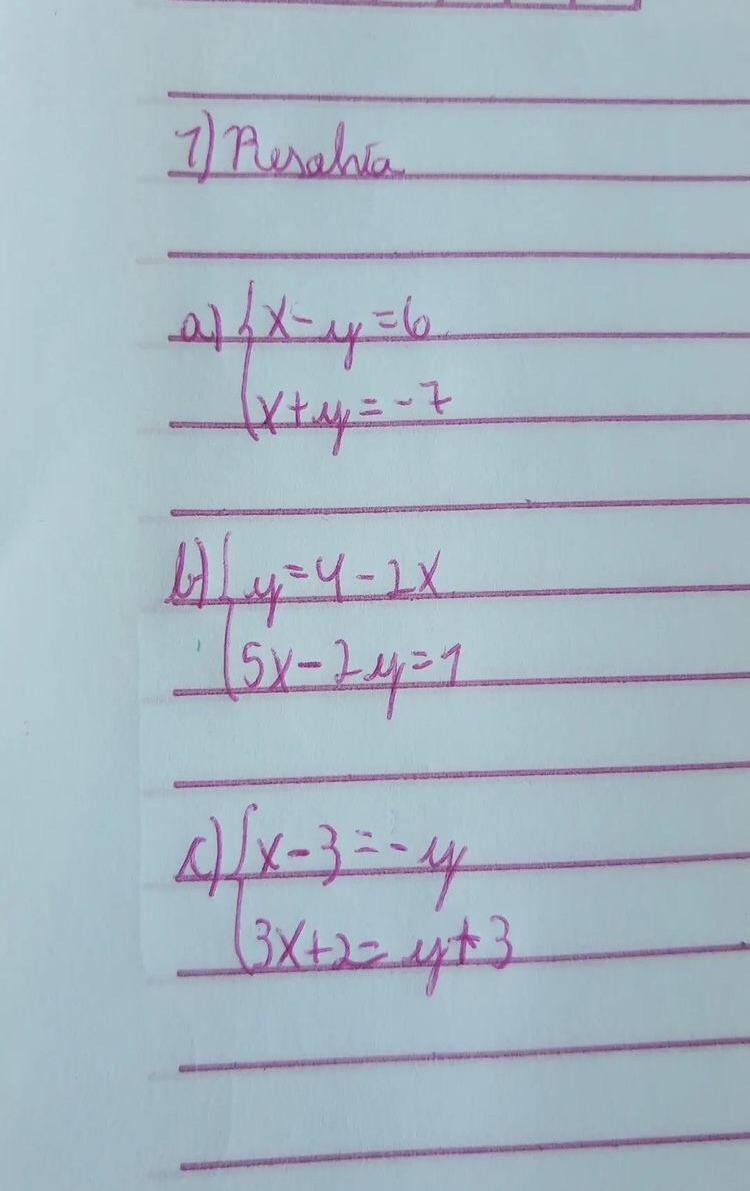 1) Resolva
a) { x - y = 6
x + y = -7
b) { y = 4 - 2x
5x - 2y = 1
c) { x - 3 = -y
3x + 2 = y + 3